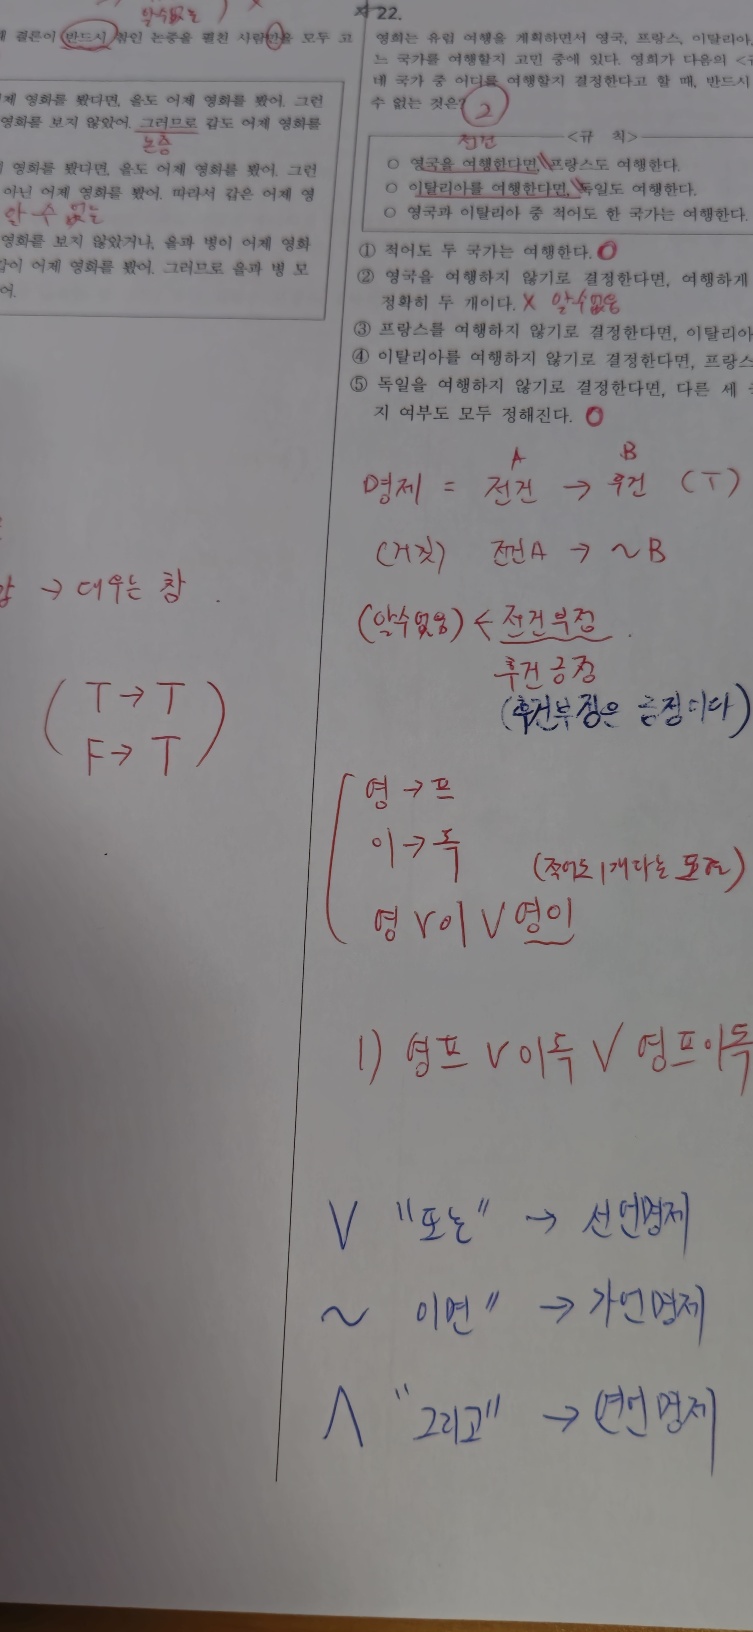 알수없는
결론이 반드시 참인 논증을 펼친 사람만을 모두 고
어제 영화를 봤다면, 을도 어제 영화를 봤어. 그런
영화를 보지 않았어. 그러므로 갑도 어제 영화를
논증
영화를 봤다면, 을도 어제 영화를 봤어. 그런
아닌 어제 영화를 봤어. 따라서 갑은 어제 영
알 수 없는
영화를 보지 않았거나, 을과 병이 어제 영화
갑이 어제 영화를 봤어. 그러므로 을과 병 모
어.
→ 대우는 참.
( T → T
F → T )
22.
영희는 유럽 여행을 계획하면서 영국, 프랑스, 이탈리아,
느 국가를 여행할지 고민 중에 있다. 영희가 다음의 <규
네 국가 중 어디를 여행할지 결정한다고 할 때, 반드시
수 없는 것은?
2
전건
<규 칙>
○ 영국을 여행한다면, 프랑스도 여행한다.
○ 이탈리아를 여행한다면, 독일도 여행한다.
○ 영국과 이탈리아 중 적어도 한 국가는 여행한다.
① 적어도 두 국가는 여행한다. O
② 영국을 여행하지 않기로 결정한다면, 여행하게
정확히 두 개이다. X 알수없음
③ 프랑스를 여행하지 않기로 결정한다면, 이탈리아
④ 이탈리아를 여행하지 않기로 결정한다면, 프랑스
⑤ 독일을 여행하지 않기로 결정한다면, 다른 세
지 여부도 모두 정해진다. O
A B
명제 = 전건 → 후건 (T)
(거짓) 전건A → ~B
(알수없음) < 전건부정.
후건긍정
(후건부정은 긍정이다)
영 → 프
이 → 독
(적어도 1개라는 표현)
영 V 이 V 영이
1) 영프 V 이독 V 영프이독
V "또는" → 선언명제
~ 이면" → 가언명제
Λ "그리고" → 연언명제